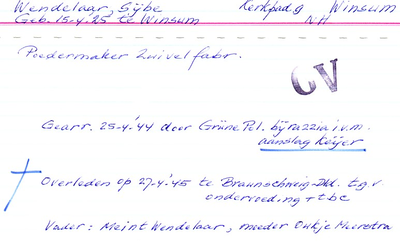 Wendelaar, Sijbe Kerkpad 9 Winsum
Geb. 15-4-'25 te Winsum NH
Poedermaker Zuivelfabr.
CV
Gearr. 25-4-'44 door Grüne Pol. bij razzia i.v.m.
aanslag Keijer
Overleden op 27-4-'45 te Braunschweig-Dld. t.g.v.
ondervoeding + tbc
Vader: Meint Wendelaar, moeder Oukje Meerstra